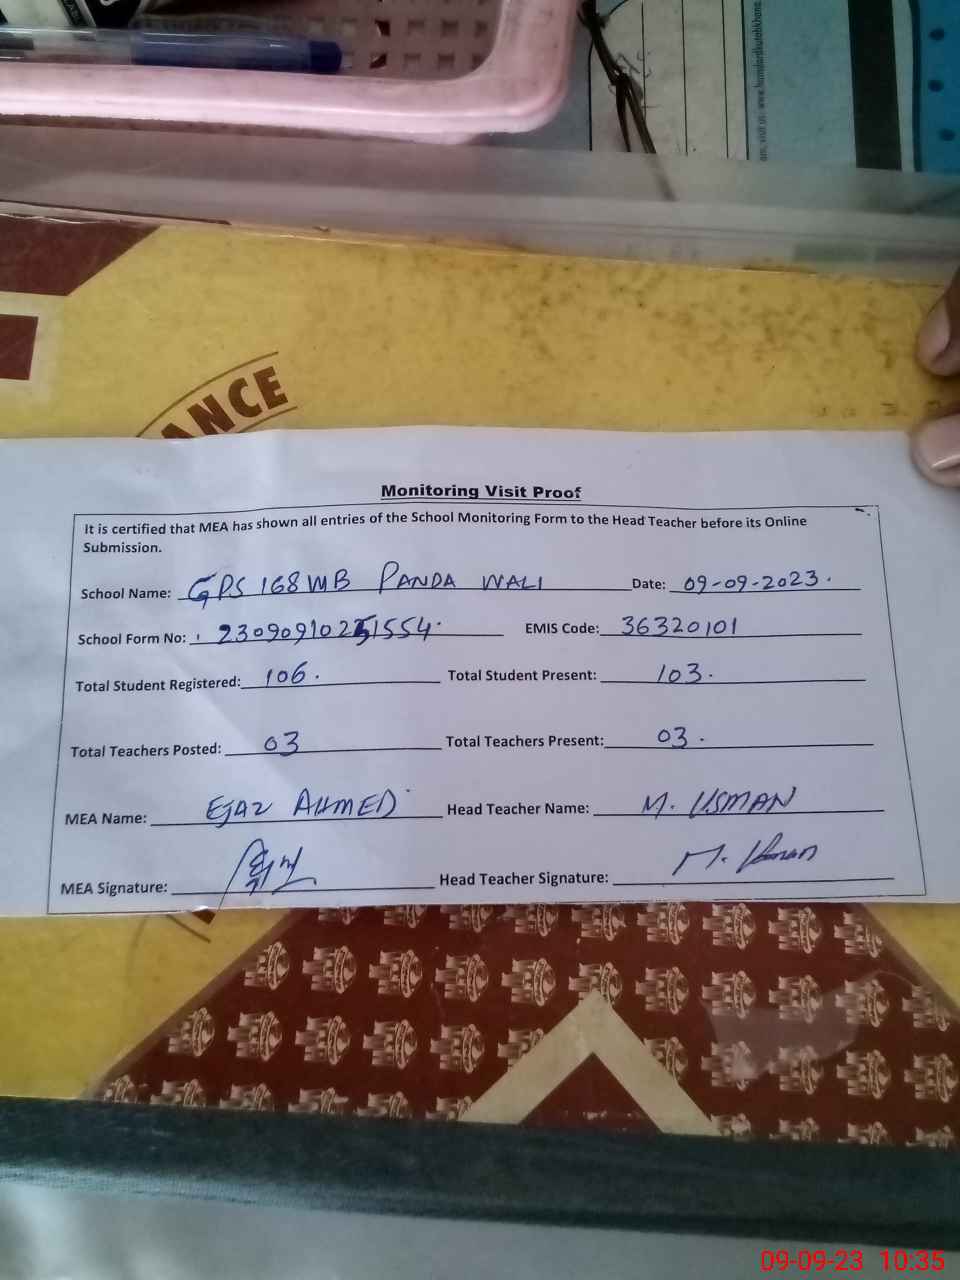 ANCE
Monitoring Visit Proof
It is certified that MEA has shown all entries of the School Monitoring Form to the Head Teacher before its Online
Submission.
School Name: GPS 168 WB PANDA WALI Date: 09-09-2023.
School Form No: EMIS Code: 36320101
Total Student Registered: 106. Total Student Present: 103.
Total Teachers Posted: 03 Total Teachers Present: 03.
MEA Name: EJAZ AHMED Head Teacher Name: M. USMAN
MEA Signature: Head Teacher Signature: M. Usman
09-09-23 10:35